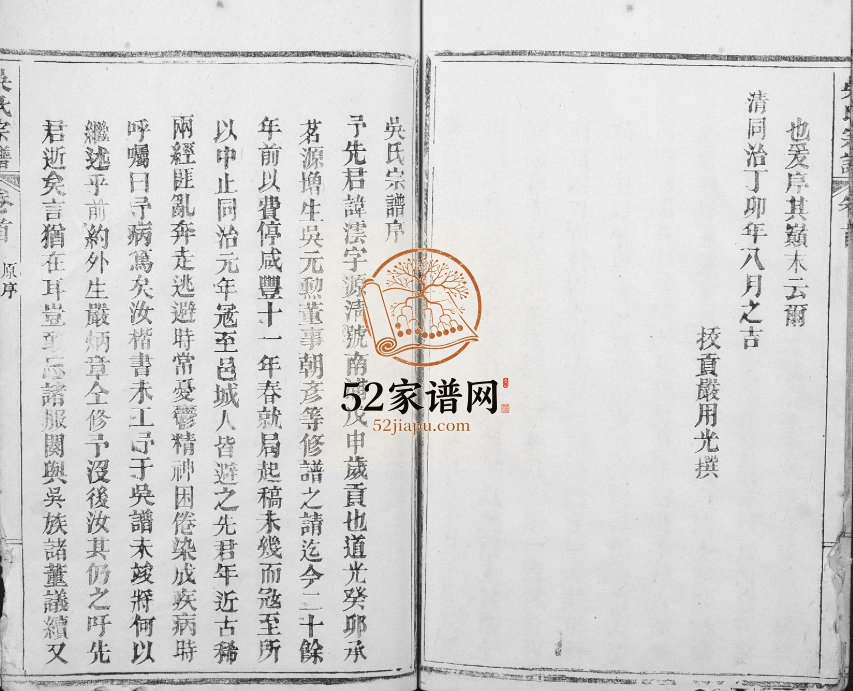 吳氏宗譜
也爰序其巔末云爾
清同治丁卯年八月之吉
拔貢嚴用光撰
吳氏宗譜序
予先君諱澐字源清號南 戊申歲貢也道光癸卯承
茗源增生吳元勳董事朝彥等修譜之請迄今二十餘
年前以費停咸豐十一年春就局起稿未幾而冦至所
以中止同治元年冦至邑城人皆避之先君年近古稀
兩經匪亂奔走逃避時常憂鬱精神困倦染成疾病時
呼囑曰予病篤矣汝楷書未工予于吳譜未竣將何以
繼述乎前約外生嚴炳章仝修予沒後汝其仍之吁先
君逝矣言猶在耳豈 忘諸服闋與吳族諸董議續又
吳氏宗譜 卷首 原序
52家谱网
52jiapu.com